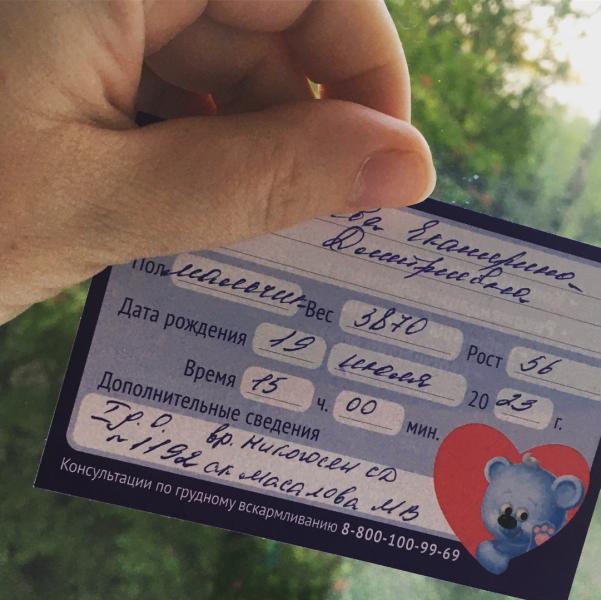 ва Екатерина
Дмитриевна
Пол мальчик Вес 3870 Рост 56
Дата рождения 19 июля 20 23 г.
Время 15 ч. 00 мин.
Дополнительные сведения
Гр. О. вр. Никогосен СД
п 1192 ак. Масалова МВ
Консультации по грудному вскармливанию 8-800-100-99-69